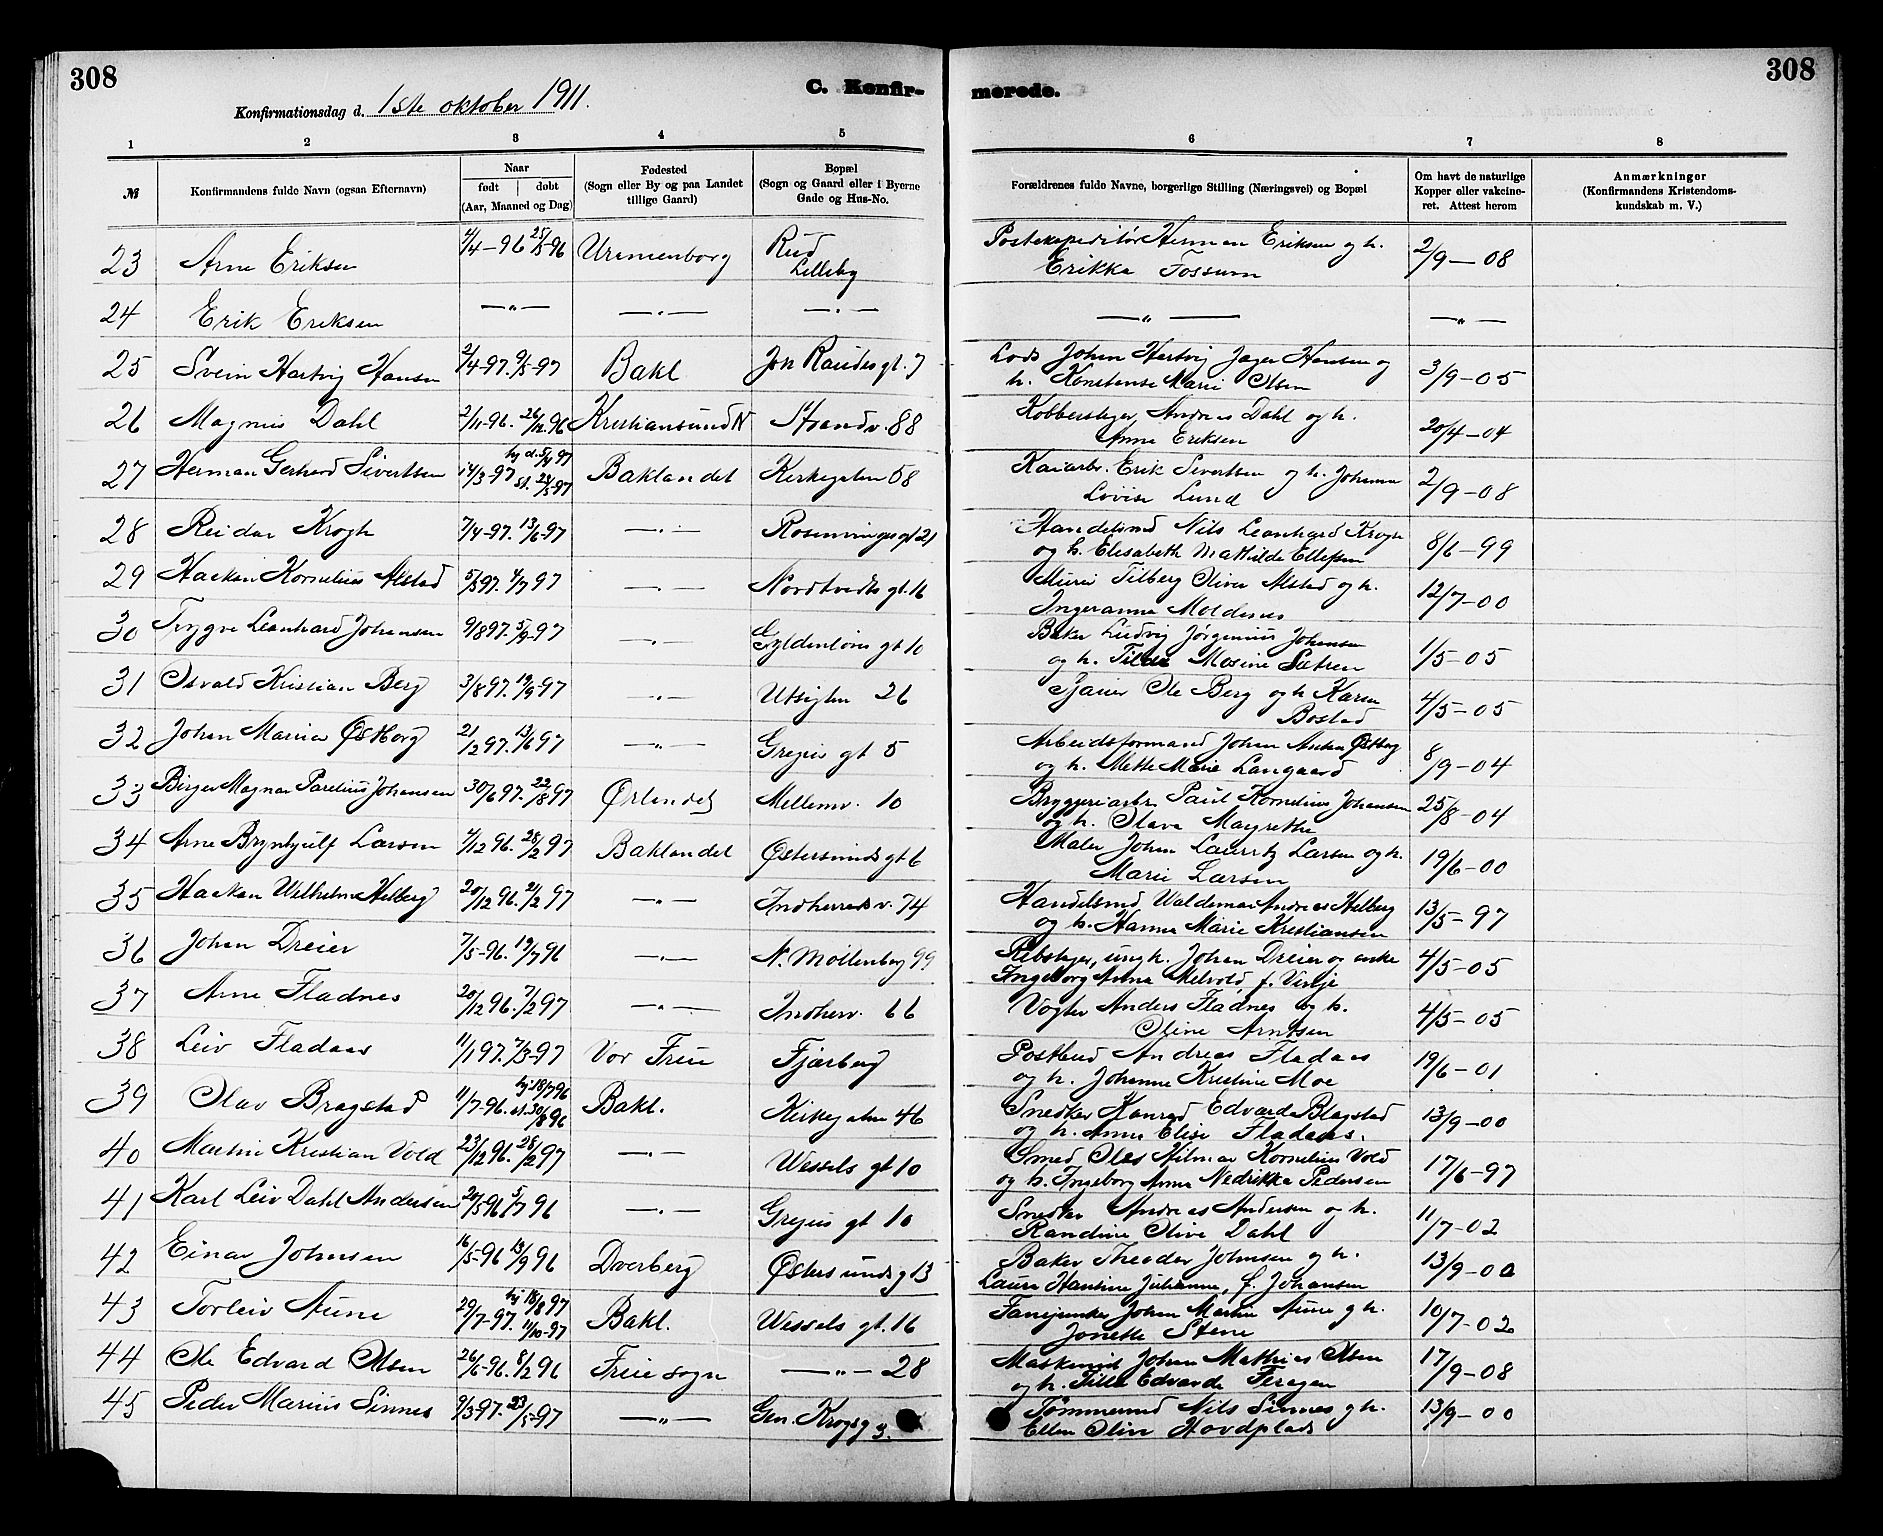 308
308
C. Konfir-
merede.
Konfirmationsdag d. 1ste oktober 1911.
1 2 3 4 5 6 7 8
№
Konfirmandens fulde Navn (ogsaa Efternavn)
Naar
født | døbt
(Aar, Maaned og Dag)
Fødested
(Sogn eller By og paa Landet
tillige Gaard)
Bopæl
(Sogn og Gaard eller i Byerne
Gade og Hus-No.
Forældrenes fulde Navne, borgerlige Stilling (Næringsvei) og Bopæl
Om havt de naturlige
Kopper eller vakcine-
ret. Attest herom
Anmærkninger
(Konfirmandens Kristendoms-
kundskab m. V.)
23 Arne Eriksen 4/4-96 25/5-96 Uranienborg Rud Lilleby Postekspeditør Herman Eriksen og h. 2/9-08
Erikka Fossum
24 Erik Eriksen —"— —"— —"— —"— —"—
25 Svein Hartvig Hansen 2/4-97. 9/5-97 Bakl Jon Raudes gt. 7 Lods Johan Hartvig Jager Hansen og 3/9-05
h. Konstanse Marie Olsen
26 Magnus Dahl 2/11-96. 26/12-96 Kristiansund N Strandv. 88 Kobberslager Andreas Dahl og h. 20/4-04
Anna Eriksen
27 Herman Gerhard Sivertsen 14/3-97 hj d. 5/4 97 st. 28/5-97 Baklandet Kirkegaten 58 Kaiarb. Erik Sivertsen og h. Johanna 2/9-08
Lovise Lund
28 Reidar Krogh 7/4-97. 13/6-97 —"— Rosenvinges gt 21 Handelsmd Nils Leonhard Krogh 8/6-99
og h. Elisabeth Mathilde Ellefsen
29 Haakon Kornelius Alstad 5/5 97. 4/7 97 —"— Nordtvedts gt. 16 Murer Tilberg Oliver Alstad og h. 12/7-00
Ingeranna Moldenes
30 Trygve Leonhard Johansen 9/8 97. 5/9-97 —"— Gyldenløves gt 10 Baker Ludvig Jørgenius Johansen 1/5-05
og h. Tilda Mosine Sætren
31 Osvald Kristian Berg 3/8 97. 19/9 97 —"— Utsigten 26 Ole Berg og h Karen 4/5-05
Bostad
32 Johan Marius Østborg 21/2 97. 13/6 97 —"— Gregus gt 5 Arbeidsformand Johan Anton Østborg 8/9-04
og h. Mette Marie Langaard
33 Birger Magnar Parelius Johansen 30/6 97. 22/8 97 Ørlandet Mellemv. 10 Bryggeriarb. Paul Kornelius Johansen 25/8-04
og h. Olava Margrethe
34 Arne Brynhjulf Larsen 4/12 96. 28/2 97 Baklandet Østersunds gt 6 Maler Johan Lauritz Larsen og h. 19/6-00
Marie Larsen
35 Haakon Wilhelm Helberg 20/12 96. 21/2 97 —"— Indherredsv. 74 Handelsmd Waldemar Andreas Helberg 13/5-97
og h. Hanna Marie Kristiansen
36 Johan Dreier 7/5-96. 19/7 96 —"— N. Møllenberg 99 Rebslager, ungk. Johan Dreier og enke 4/5-05
Ingeborg Anna Melvold f. Vinje
37 Arne Fladnes 20/12 96. 7/2 97 —"— Indherv. 66 Vogter Anders Fladnes og h. 4/5-05
Oline Arntsen
38 Leiv Fladaas 11/1 97. 7/3-97 Vor Frue Fjærberg Postbud Andreas Fladaas 19/6-01
og h. Johanne Kristine Moe
39 Olav Bragstad 11/7-96. hj. 18/7 96 st. 30/8 96 Bakl. Kirkegaten 46 Snedker Konrad Edvarda Blagstad 13/9-00
og h. Anna Elise Fladaas.
40 Martin Kristian Vold 23/12 96. 28/2 97 —"— Wessels gt 10 Smed Oles Hilmar Kornelius Vold 17/6-97
og h. Ingeborg Anna Nedrikka Pedersen
41 Karl Leiv Dahl Andersen 20/5 96 5/7 96 —"— Gregus gt 10 Snedker Andreas Andersen og h. 11/7-02
Randine Olive Dahl
42 Einar Johnsen 16/5-96 13/9 96 Dverberg Østersundsg 13 Baker Theodor Johnsen og h. 13/9-00
Laura Hantine Julianne, f. Johansen
43 Torleiv Aune 29/7-97. hj 18/8 97 11/10-97 Bakl. Wessels gt. 16 Fanejunker Johan Martin Aune og h. 10/7-02
Jonette Stene
44 Ole Edvard Olsen 26/6-96. 8/2 96 Frue sogn —"— 28 Maskinist Johan Mathias Olsen 17/9-08
og h. Tilla Edvarda Feragen
45 Peder Marius Sinnes 9/3-97. 23/5-97 —"— Gen. Krogsg 3. Tømmermd Nils Sinnes og h. 13/9-00
Ellen Olive Hovdplads